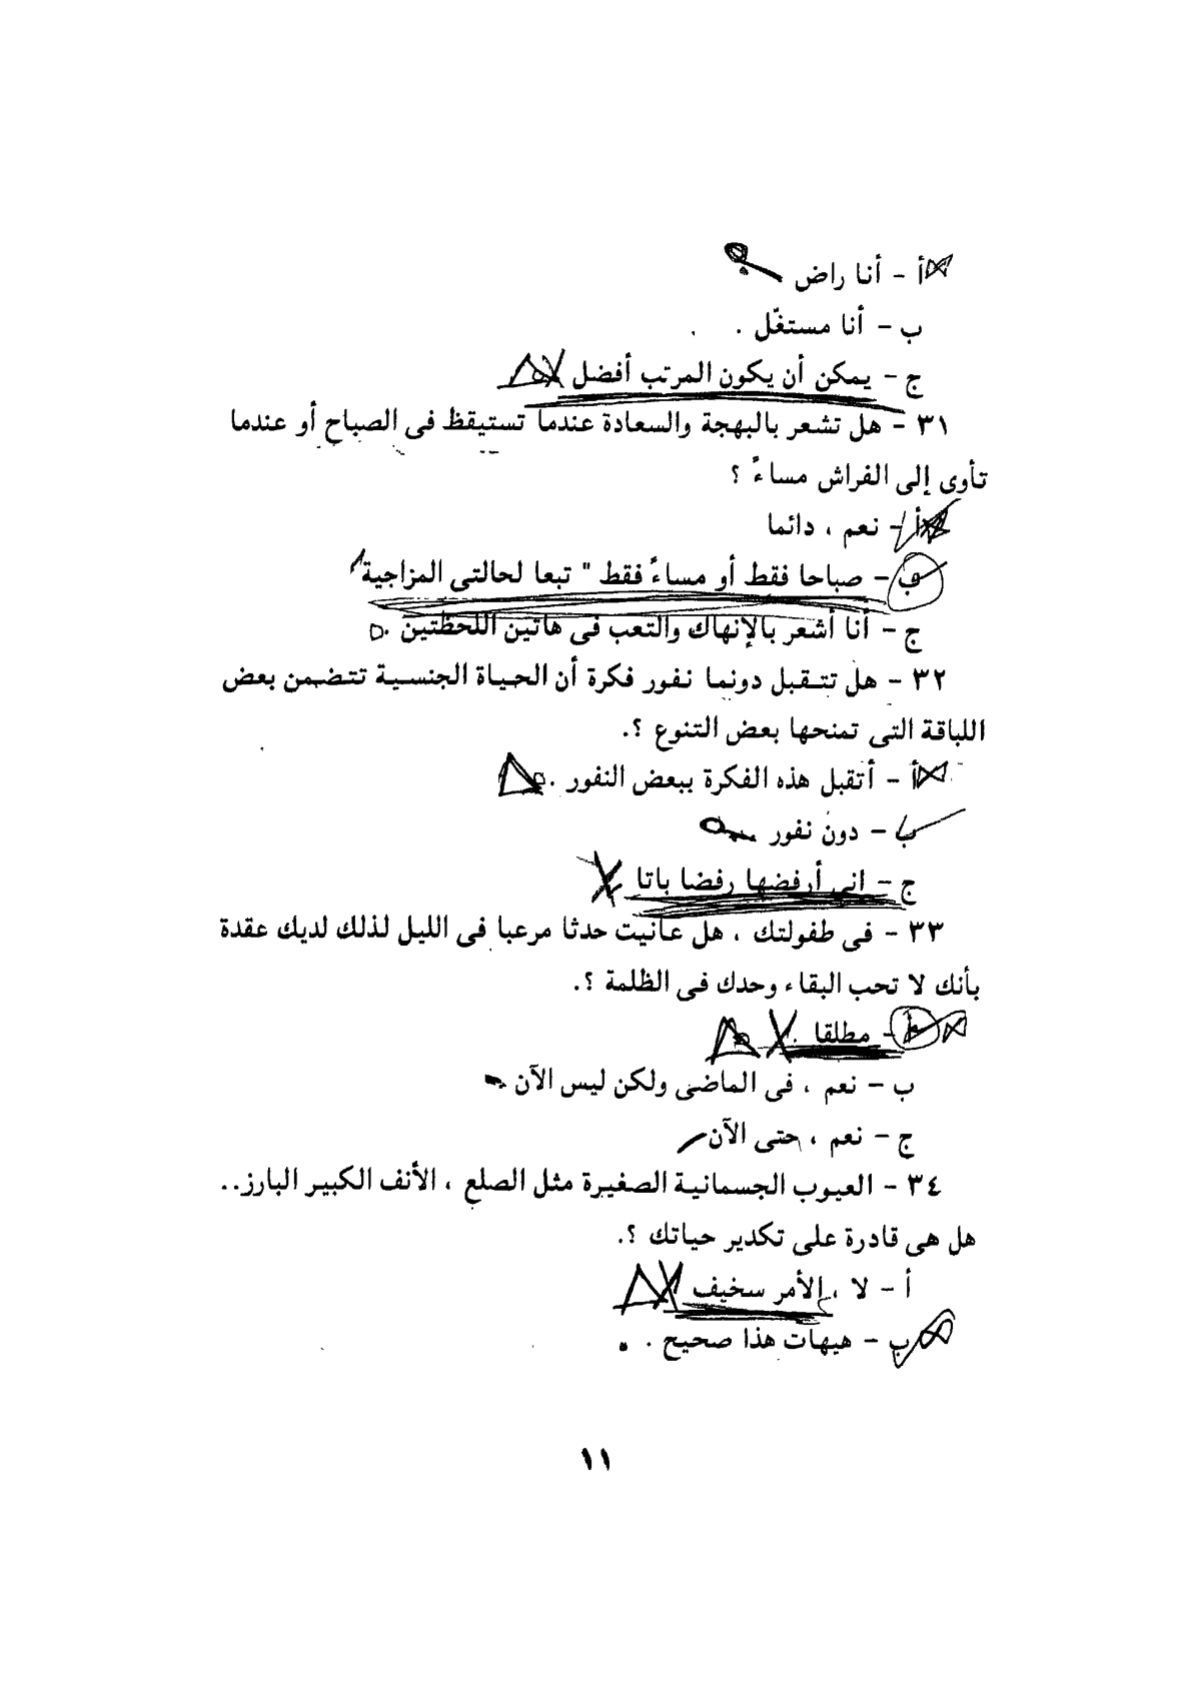 أ - أنا راض
ب - أنا مستغّل .
ج - يمكن أن يكون المرتب أفضل
٣١ - هل تشعر بالبهجة والسعادة عندما تستيقظ فى الصباح أو عندما
تأوى إلى الفراش مساءً ؟
أ - نعم ، دائما
ب - صباحا فقط أو مساءً فقط " تبعا لحالتى المزاجية "
ج - أنا أشعر بالإنهاك والتعب فى هاتين اللحظتين .
٣٢ - هل تتقبل دونما نفور فكرة أن الحياة الجنسية تتضمن بعض
اللباقة التى تمنحها بعض التنوع ؟.
أ - أتقبل هذه الفكرة ببعض النفور .
ب - دون نفور
ج - انى أرفضها رفضا باتا
٣٣ - فى طفولتك ، هل عانيت حدثا مرعبا فى الليل لذلك لديك عقدة
بأنك لا تحب البقاء وحدك فى الظلمة ؟.
أ - مطلقا .
ب - نعم ، فى الماضى ولكن ليس الآن
ج - نعم ، حتى الآن
٣٤ - العيوب الجسمانية الصغيرة مثل الصلع ، الأنف الكبير البارز..
هل هى قادرة على تكدير حياتك ؟.
أ - لا ، الأمر سخيف
ب - هيهات هذا صحيح .
١١